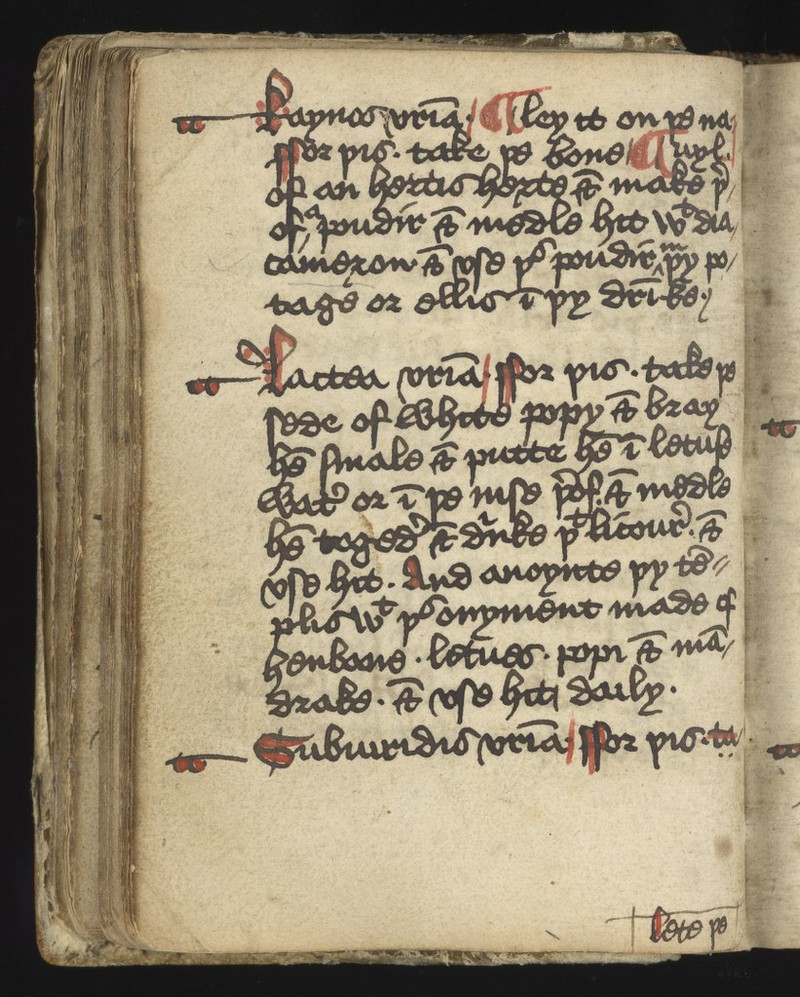 Kaynos vriā· ¶ ley it on þe na/
ffor þis· take þe bone ¶ uyl·
of an hertis herte & make þ̄/
of ᵃ poudir & medle hit wᵗ dia/
cameron· & vse þˢ poudir ī þy po/
tage or ellis ī þy drīke·
lactea vriā· ffor þis· take þe
sede of white popy & bray
hē smale & putte hē ī letuse
watʳ or ī þe iuse þʳof· & medle
hē togedʳ & drīke þᵗ licourʳ· &
vse hit· And anoynte þy tē⸗
plis wᵗ þˢ onyment made of
henbane· letues· popi & mā/
drake· & vse hit daily·
Subuiridis vriā· ffor þis· ta
lete þe